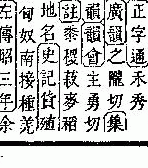 正字通禾秀
廣韻之隴切集
韻韻會主勇切
註黍稷菽麥稻
地名史記貨殖
匈奴南接種羌
左傳昭三年余